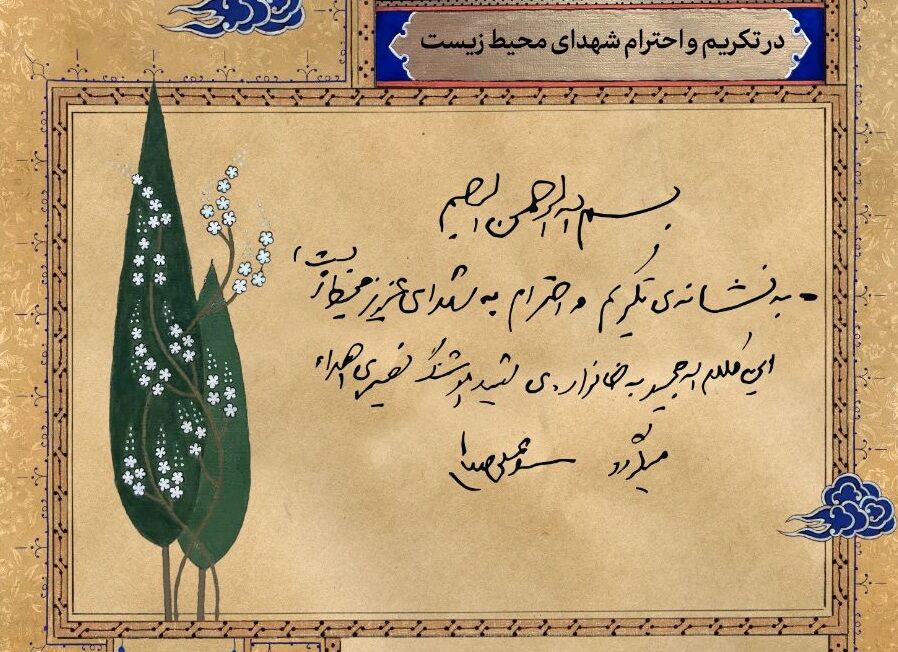 در تکریم و احترام شهدای محیط زیست
بسم الله الرحمن الرحیم
به نشانه‌ی تکریم و احترام به شهدای عزیز محیط زیست،
این کلام الله مجید به خانواده‌ی شهید هوشنگ نصیری اهداء
میگردد